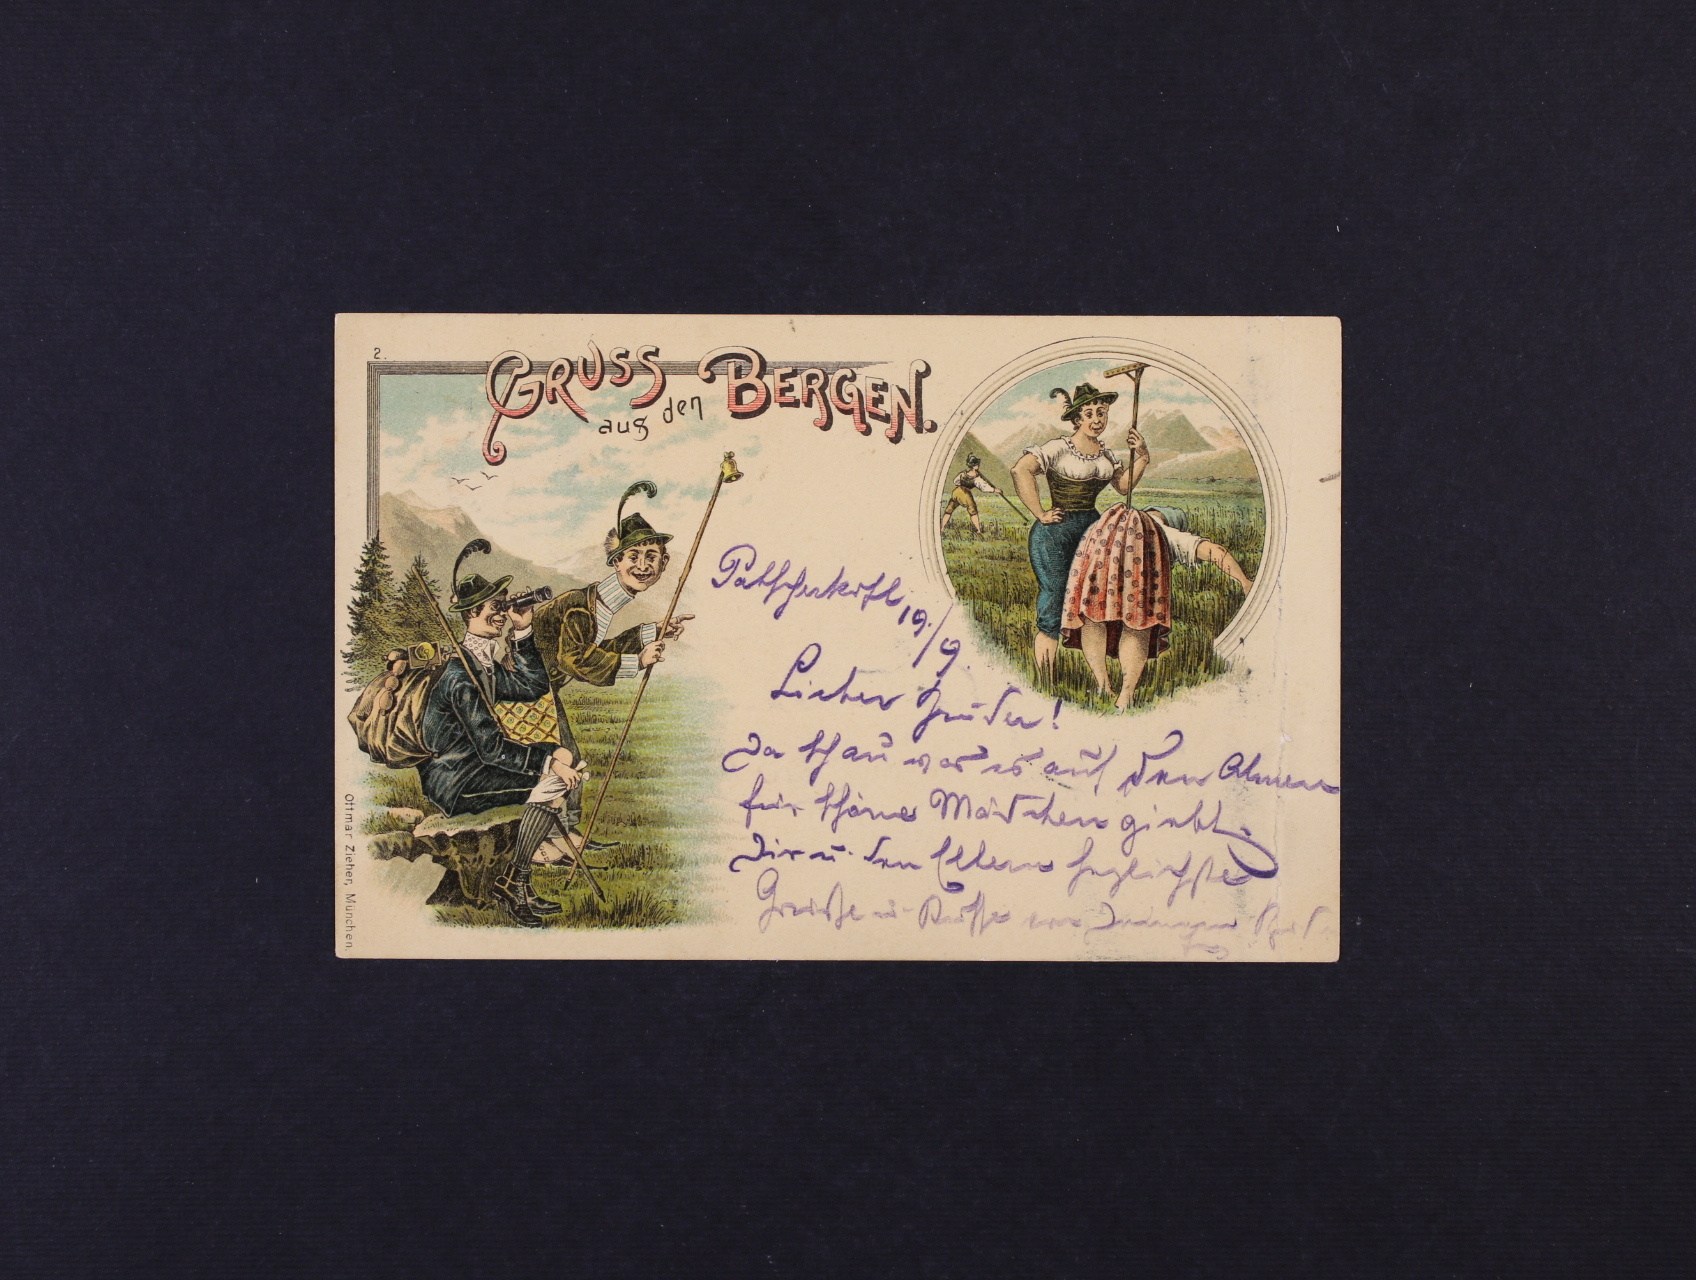 2.
GRUSS
aus den
BERGEN.
Patscherkofl
19./9.
Lieber Bruder!
Da schau was es auf den Almen
für schöne Mädchen giebt.
Dir u. den Eltern herzlichste
Grüße u. Küsse von
Ottmar Zieher, München.